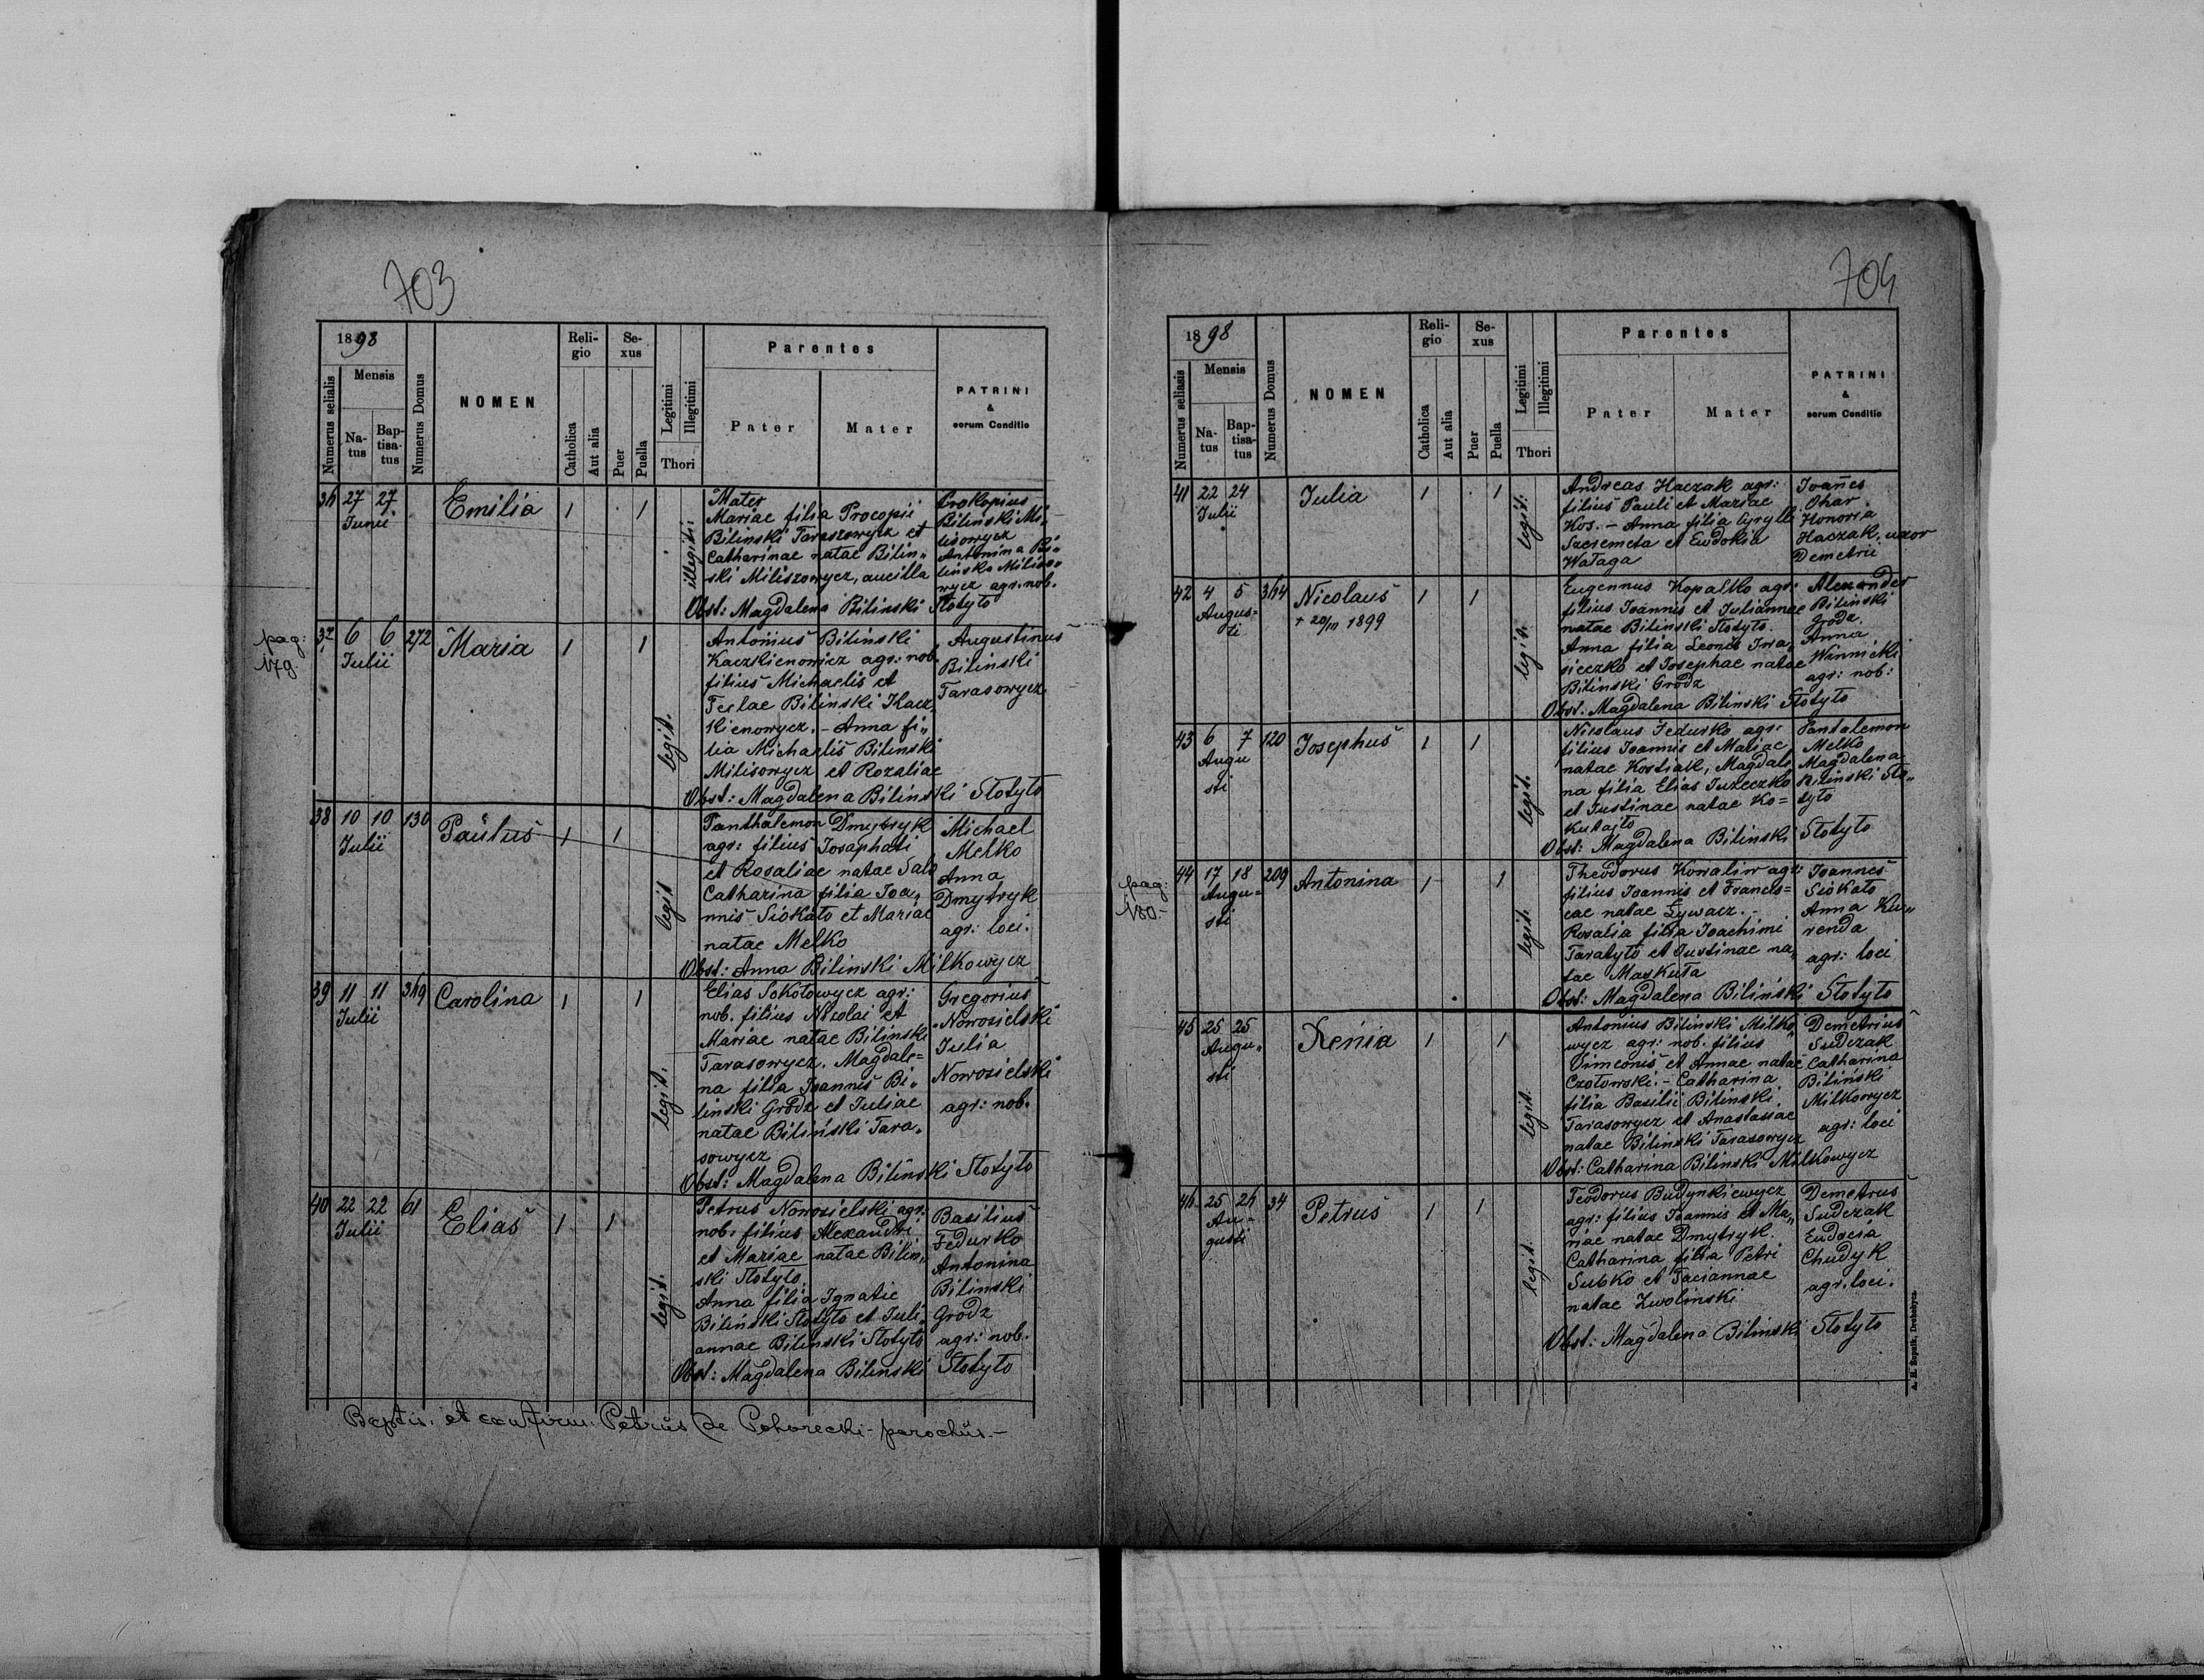 703
1898
Numerus serialis
Mensis
Natus
Baptisatus
Numerus Domus
NOMEN
Religio
Catholica
Aut alia
Sexus
Puer
Puella
Legitimi
Illegitimi
Thori
Parentes
Pater
Mater
PATRINI
&
eorum Conditio
36 27 27 Emilia 1 1 illegiti:
Junii
Mater
Mariae filia Procopii
Bilinski Taraszowycz et
Catharinae natae Bilin„
ski Miliszowycz, ancilla
Obst: Magdalena Bilinski Stotyto
Prokopius
Bilinski Mi„
lisowycz
Antonina Bi„
linska Miliso„
wycz agr: nob.
pag:
179.
37 6 6 272 Maria 1 1 legit.
Julii
Antonius Bilinski
Kaczkienowicz agr: nob.
filius Michaelis et
Teclae Bilinski Kacz„
kienowycz. - Anna fi„
lia Michaelis Bilinski
Milisowycz et Rozaliae
Obst: Magdalena Bilinski Stotyto
Augustinus
Bilinski
Tarasowycz
38 10 10 130 Paulus 1 1 legit
Julii
Panthalemon Dmytryk
agr: filius Josaphati
et Rosaliae natae Sabo
Catharina filia Joa„
nnis Siokato et Mariae
natae Melko
Obst: Anna Bilinski Milkowycz
Michael
Melko
Anna
Dmytryk
agr: loci.
39 11 11 349 Carolina 1 1 legit.
Julii
Elias Sokolowycz agr:
nob. filius Nicolai et
Mariae natae Bilinski
Tarasowycz. Magdale=
na filia Joannis Bi„
linski Grodz et Juliae
natae Bilinski Tara„
sowycz
Obst: Magdalena Bilinski Stotyto
Gregorius
Nowosielski
Julia
Nowosielski
agr: nob.
40 22 22 61 Elias 1 1 legit.
Julii
Petrus Nowosielski agr:
nob: filius Alexandri
et Mariae natae Bilin„
ski Stotyto.
Anna filia Ignatie
Bilinski Stotyto et Juli„
annae Bilinski Stotyto
Obst: Magdalena Bilinski Stotyto
Basilius
Fedurko
Antonina
Bilinski
Grodz
agr: nob.
Baptis: et confirm: Petrus de Pohorecki - parochus. -
704
1898
Numerus seliasis
Mensis
Natus
Baptisatus
Numerus Domus
NOMEN
Religio
Catholica
Aut alia
Sexus
Puer
Puella
Legitimi
Illegitimi
Thori
Parentes
Pater
Mater
PATRINI
&
eorum Conditio
41 22 24 Julia 1 1 legit:
Julii
Andreas Haczak agr:
filius Pauli et Mariae
Kos. - Anna filia Cyrylli
Szeremeta et Ewdokia
Wataga
Joannes
Ohar
Honoria
Haczak, uxor
Demetrii
42 4 5 344 Nicolaus 1 1 legit.
Augus=
ti
+ 20/III 1899
Eugennus Kopatko agr:
filius Joannis et Juliannae
natae Bilinski Stotyto.
Anna filia Leonis Iwa„
sieczko et Josephae natae
Bilinski Grodz
Obst: Magdalena Bilinski Stotyto
Alexander
Bilinski
Grodz.
Anna
Winnicki
agr: nob:
43 6 7 120 Josephus 1 1 legit.
Augu
sti
Nicolaus Fedurko agr:
filius Joannis et Mariae
natae Kostiak, Magdale
na filia Elias Juzeczko
et Justinae natae Ko=
kutajto
Obst: Magdalena Bilinski Stotyto
Pantalemon
Melko
Magdalena
Bilinski Sto„
tyto
pag:
180. -
44 17 18 209 Antonina 1 1 legit.
Augu=
sti
Theodorus Kowaliw agr:
filius Joannis et Francis=
cae natae Zywacz. -
Rosalia filia Joachimi
Taratyto et Justinae na„
tae Maskuta
Obst: Magdalena Bilinski Stotyto
Joannes
Siokato
Anna Ku„
renda
agr: loci
45 25 25 Xenia 1 1 legit.
Augu„
sti
Antonius Bilinski Milko„
wycz agr: nob. filius
Simeonis et Annae natae
Czotowski. - Catharina
filia Basilii Bilinski
Tarasowycz et Anastasiae
natae Bilinski Tarasowycz
Obst: Catharina Bilinski Milkowycz
Demetrius
Sudczak
Catharina
Bilinski
Milkowycz
agr: loci
46 25 26 34 Petrus 1 1 legit.
Au=
gusti
Teodorus Budynkiewycz
agr: filius Joannis et Ma„
riae natae Dmytryk.
Catharina filia Petri
Subko et Taciannae
natae Zwolinski
Obst: Magdalena Bilinski Stotyto
Demetrus
Sudczak
Eudocia
Chudyk
agr. loci.
A. H. Zupnik, Drohobycz.